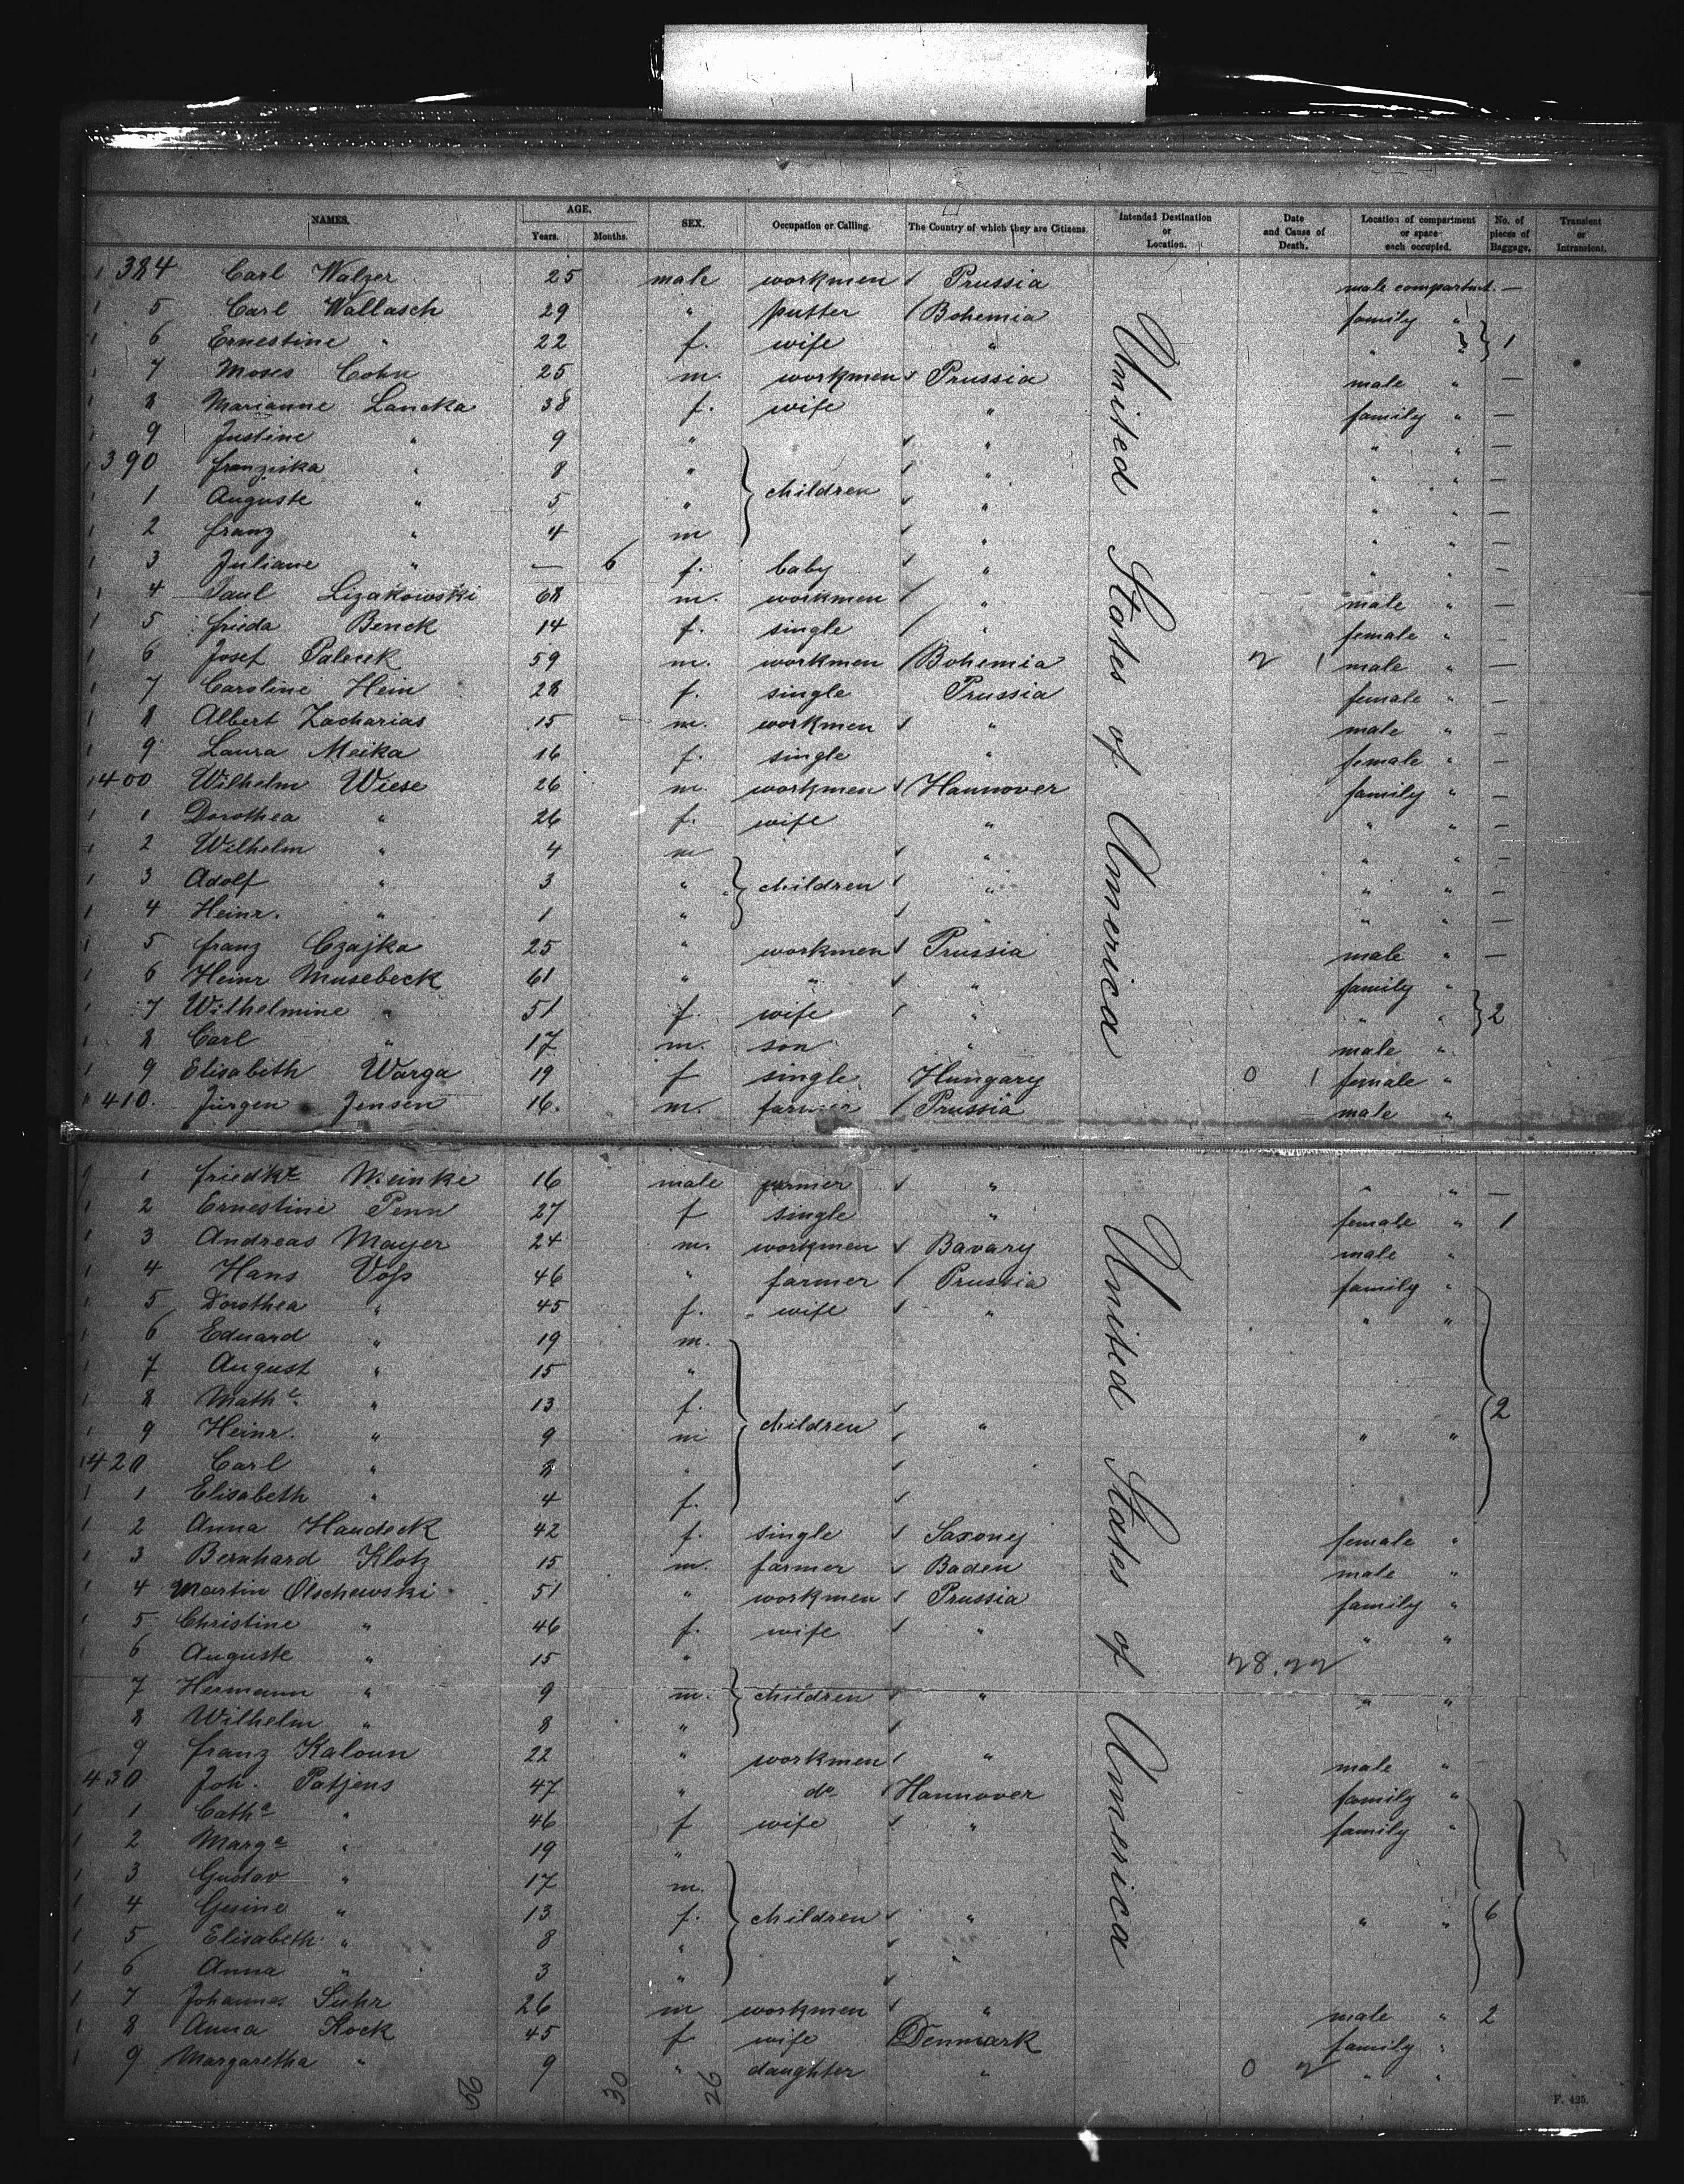 NAMES. AGE. Years. Months. SEX. Occupation or Calling. The Country of which they are Citizens. Intended Destination or Location. Date and Cause of Death. Location of compartment or space each occupied. No. of pieces of Baggage. Transient or Intransient.
United States of America
1 384 Carl Walzer 25 male workmen Prussia male compartmt. —
1 5 Carl Wallasch 29 " putter Bohemia family "
1 6 Ernestine " 22 f. wife " " " } 1
1 7 Moses Cohn 25 m. workmen Prussia male " —
1 8 Marianne Lancka 38 f. wife " family " —
1 9 Justine " 9 " " " " —
1 390 Franziska " 8 " " " " —
1 1 Auguste " 5 " } children " " " —
1 2 Franz " 4 m " " " —
1 3 Juliane " — 6 f. baby " " " —
1 4 Paul Lizakowski 68 m. workmen " male " —
1 5 Frieda Benck 14 f. single " female " —
1 6 Josef 59 m. workmen Bohemia 2 1 male " —
1 7 Caroline Hein 28 f. single Prussia female " —
1 8 Albert Zacharias 15 m. workmen " male " —
1 9 Laura Meika 16 f. single " female " —
1400 Wilhelm Wiese 26 m. workmen Hannover family " —
1 1 Dorothea " 26 f. wife " " " —
1 2 Wilhelm " 4 m " " " —
1 3 Adolf " 3 " } children " " " —
1 4 Heinr. " 1 " " " " —
1 5 Franz Czajka 25 " workmen Prussia male " —
1 6 Heinr Musebeck 61 " " " family "
1 7 Wilhelmine " 51 f. wife " " " } 2
1 8 Carl " 17 m. son " male "
1 9 Elisabeth Warga 19 f single Hungary 0 1 female "
1 410. Jürgen Jensen 16. m. farmer Prussia male "
United States of America
1 1 Friedkr Meinke 16 male farmer " " " —
1 2 Ernestine Penn 27 f single " female " 1
1 3 Andreas Mayer 24 m. workmen Bavary male "
1 4 Hans Voss 46 " farmer Prussia family "
1 5 Dorothea " 45 f. wife " " "
1 6 Eduard " 19 m.
1 7 August " 15 "
1 8 Mathe " 13 f. } 2
1 9 Heinr. " 9 m } children " " "
1420 Carl " 8 "
1 1 Elisabeth " 4 f.
1 2 Anna Haudeck 42 f. single Saxony female "
1 3 Bernhard Klotz 15 m. farmer Baden male "
1 4 Martin Olschewski 51 " workmen Prussia family "
1 5 Christine " 46 f. wife " " "
6 Auguste " 15 " 28.22
7 Hermann " 9 m. } children " " "
8 Wilhelm " 8 "
9 Franz Kaloun 22 " workmen " male "
430 Joh. Patjens 47 " do Hannover family "
1 1 Catha " 46 f wife " family "
1 2 Marga " 19 "
1 3 Gustav " 17 m.
1 4 Gesine " 13 f. } children " " " 6
1 5 Elisabeth " 8 " "
1 6 Anna " 3 "
1 7 Johannes Suhr 26 m workmen " male " 2
1 8 Anna Kock 45 f wife Denmark family "
1 9 Margaretha " 9 " daughter " 0 2 " "
56 30 26
F. 425.